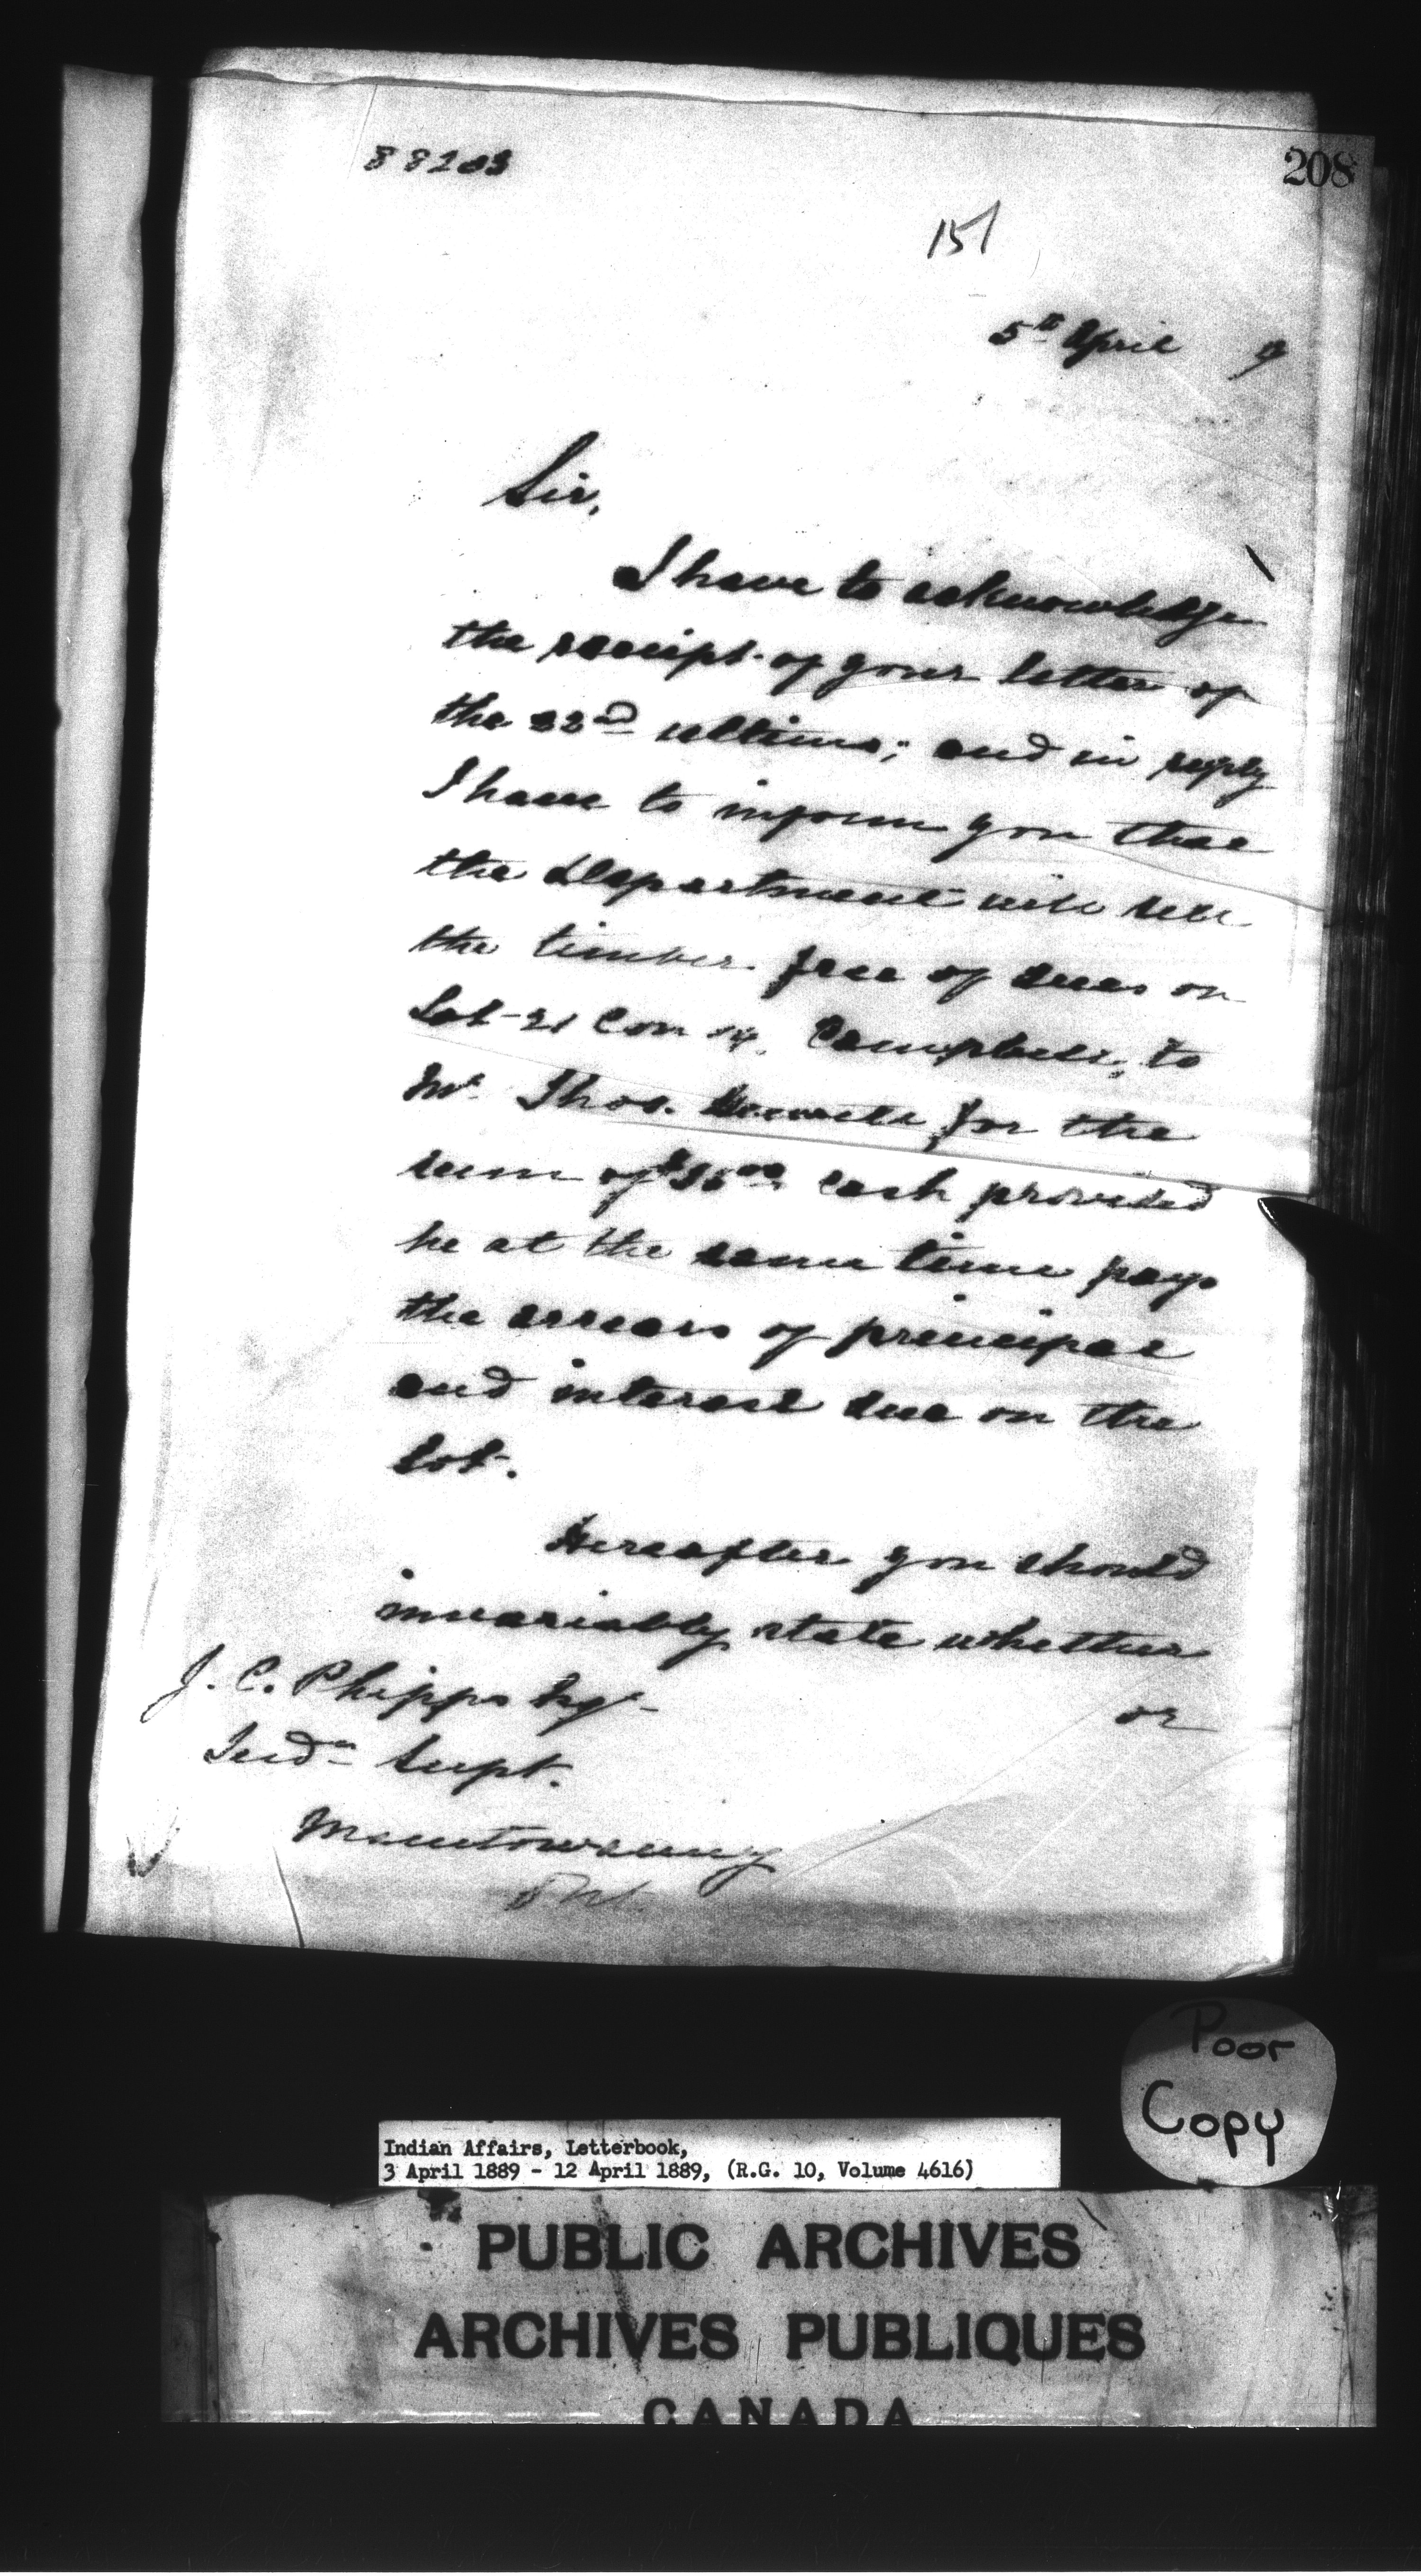 208
151
5th April 9
Sir,
I have to acknowledge
the receipt of your letter of
the 22nd ultimo; and in reply
I have to inform you that
the Department will sell
the timber free of dues on
Lot 21 Con 14, Campbell, to
Mr. Thos. for the
sum of cash provided
he at the same time pays
the arrears of principal
and interest due on the
lot.
Hereafter you should
invariably state whether
or
J. C. Phipps Esqr
Indn Supt.
Manitowaning
Ont.
Poor
Copy
Indian Affairs, Letterbook,
3 April 1889 - 12 April 1889, (R.G. 10, Volume 4616)
PUBLIC ARCHIVES
ARCHIVES PUBLIQUES
CANADA